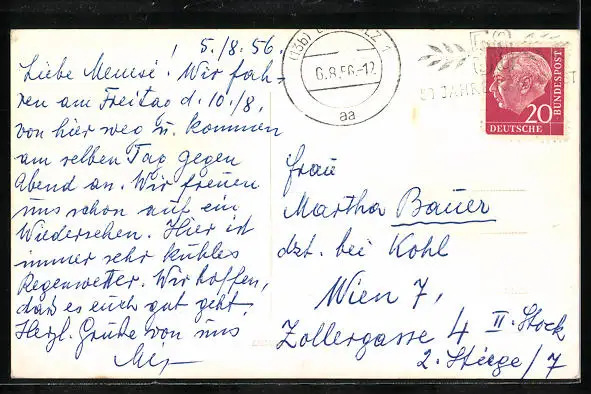 5./8.56.
Liebe Memsi! Wir fah-
ren am Freitag d. 10./8.
von hier weg u. kommen
am selben Tag gegen
Abend an. Wir freuen
uns schon auf ein
Wiedersehen. Hier ist
immer sehr kühles
Regenwetter. Wir hoffen,
daß es euch gut geht.
Herzl. Grüße von uns
(13b)
6.8.56.-12
aa
20
DEUTSCHE
BUNDESPOST
Frau
Martha Bauer
dzt. bei Kohl
Wien 7,
Zollergasse 4 II. Stock
2. Stiege/7